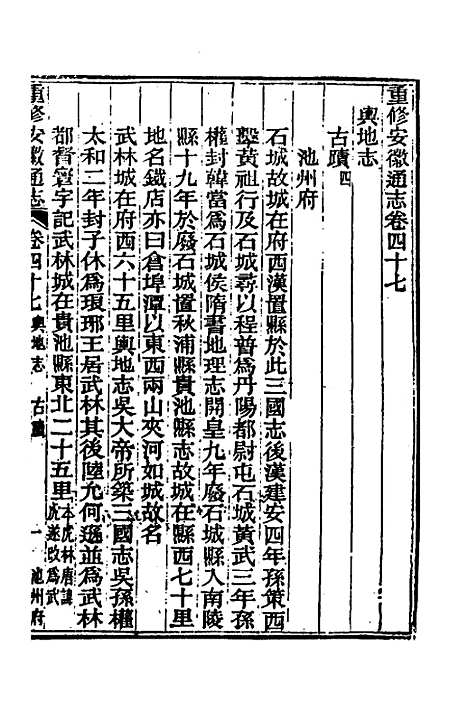 重修安徽通志卷四十七
輿地志
古蹟四
池州府
石城故城在府西漢置縣於此三國志後漢建安四年孫策西
擊黃祖行及石城尋以程普爲丹陽都尉屯石城黃武三年孫
權封韓當爲石城侯隋書地理志開皇九年廢石城縣入南陵
縣十九年於廢石城置秋浦縣貴池縣志故城在縣西七十里
地名鐵店亦曰倉埠潭以東西兩山夾河如城故名
武林城在府西六十五里輿地志吳大帝所築三國志吳孫權
太和二年封子休爲琅琊王居武林其後陸允何遜並爲武林
都督寰宇記武林城在貴池縣東北二十五里本虎林唐諱
虎遂改爲武
重修安徽通志 卷四十七 輿地志 古蹟 一 池州府